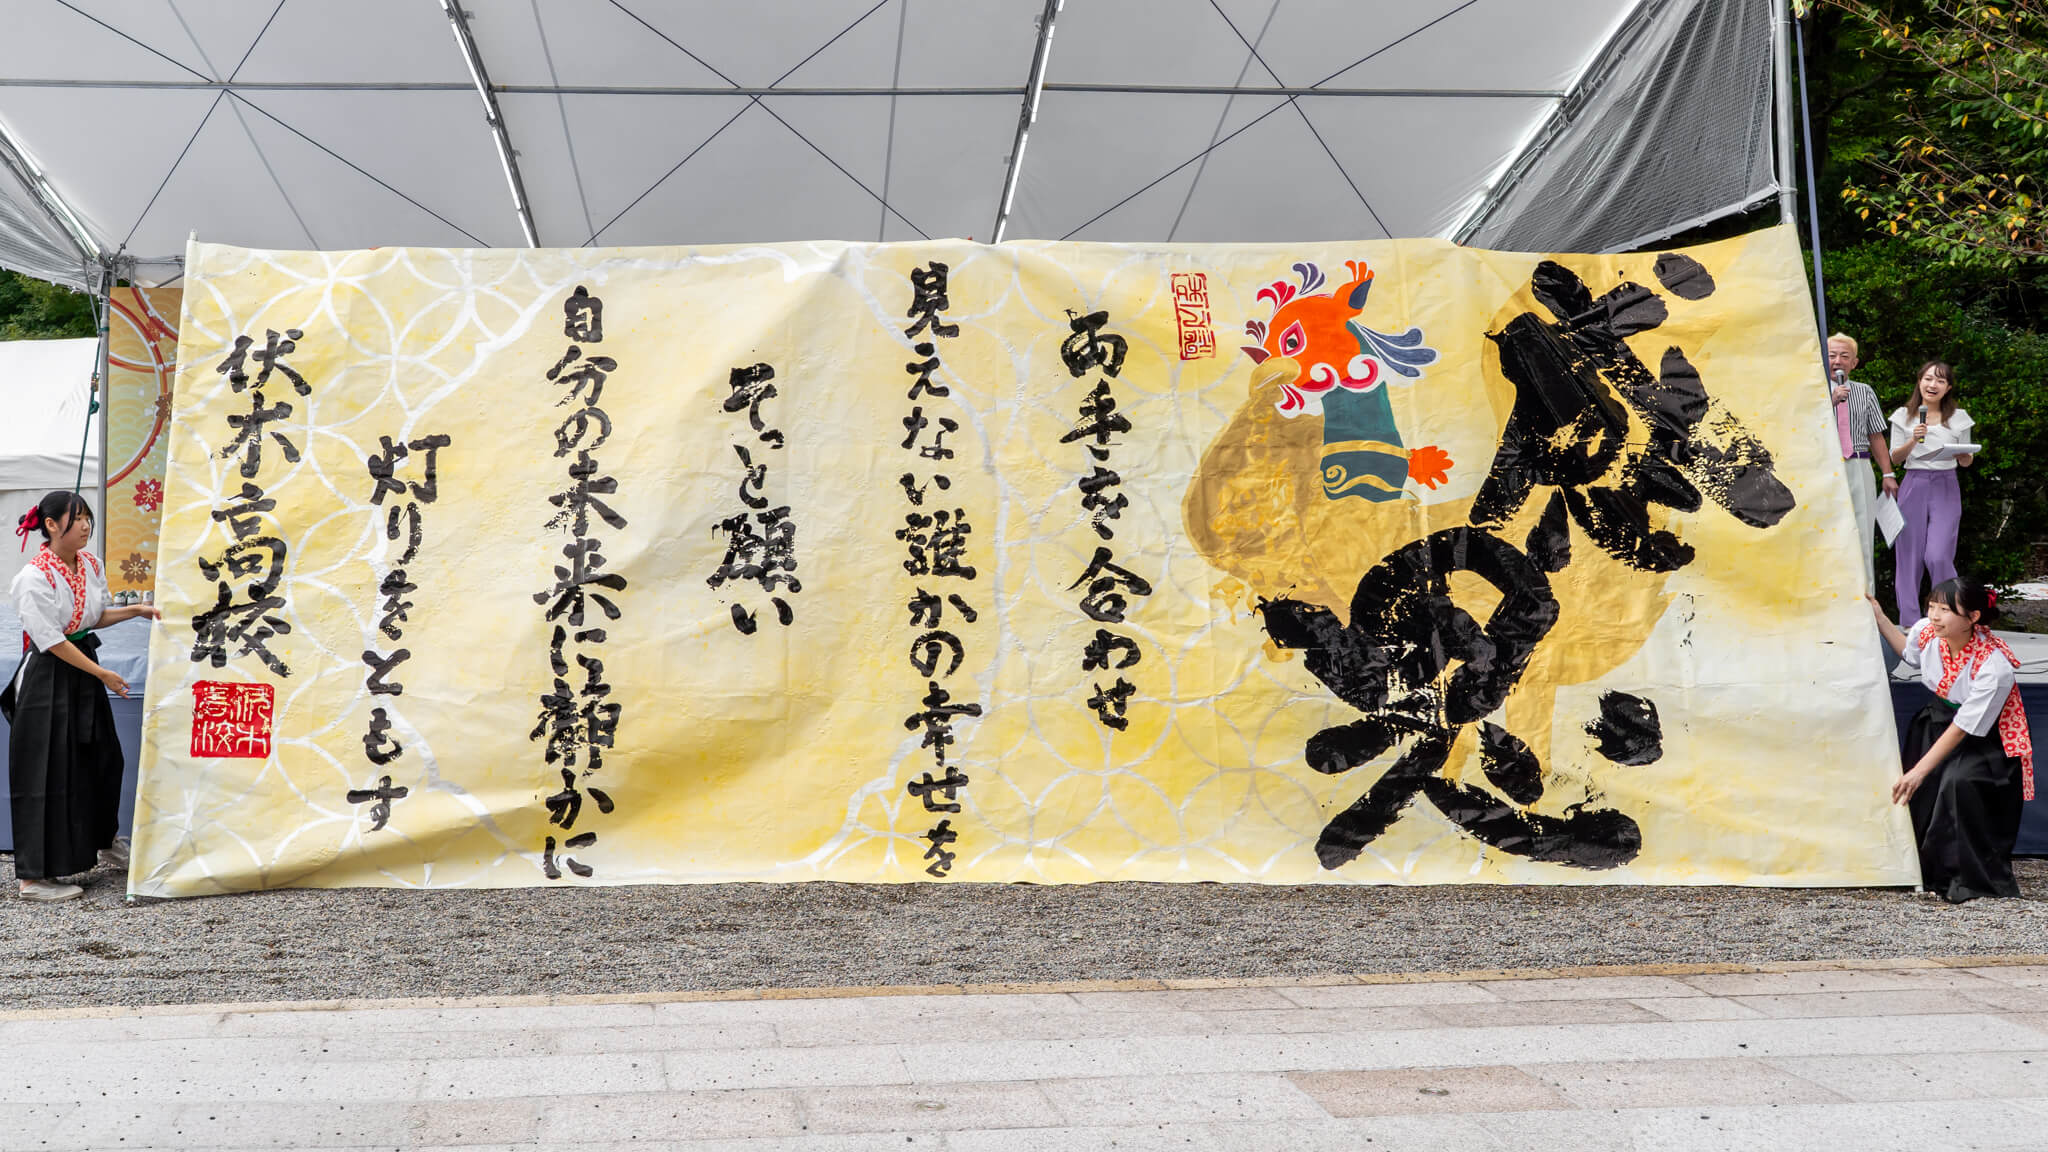 両手を合わせ
見えない誰かの幸せを
そっと願い
自分の未来に静かに
灯りをともす
伏木高校
伏木高校